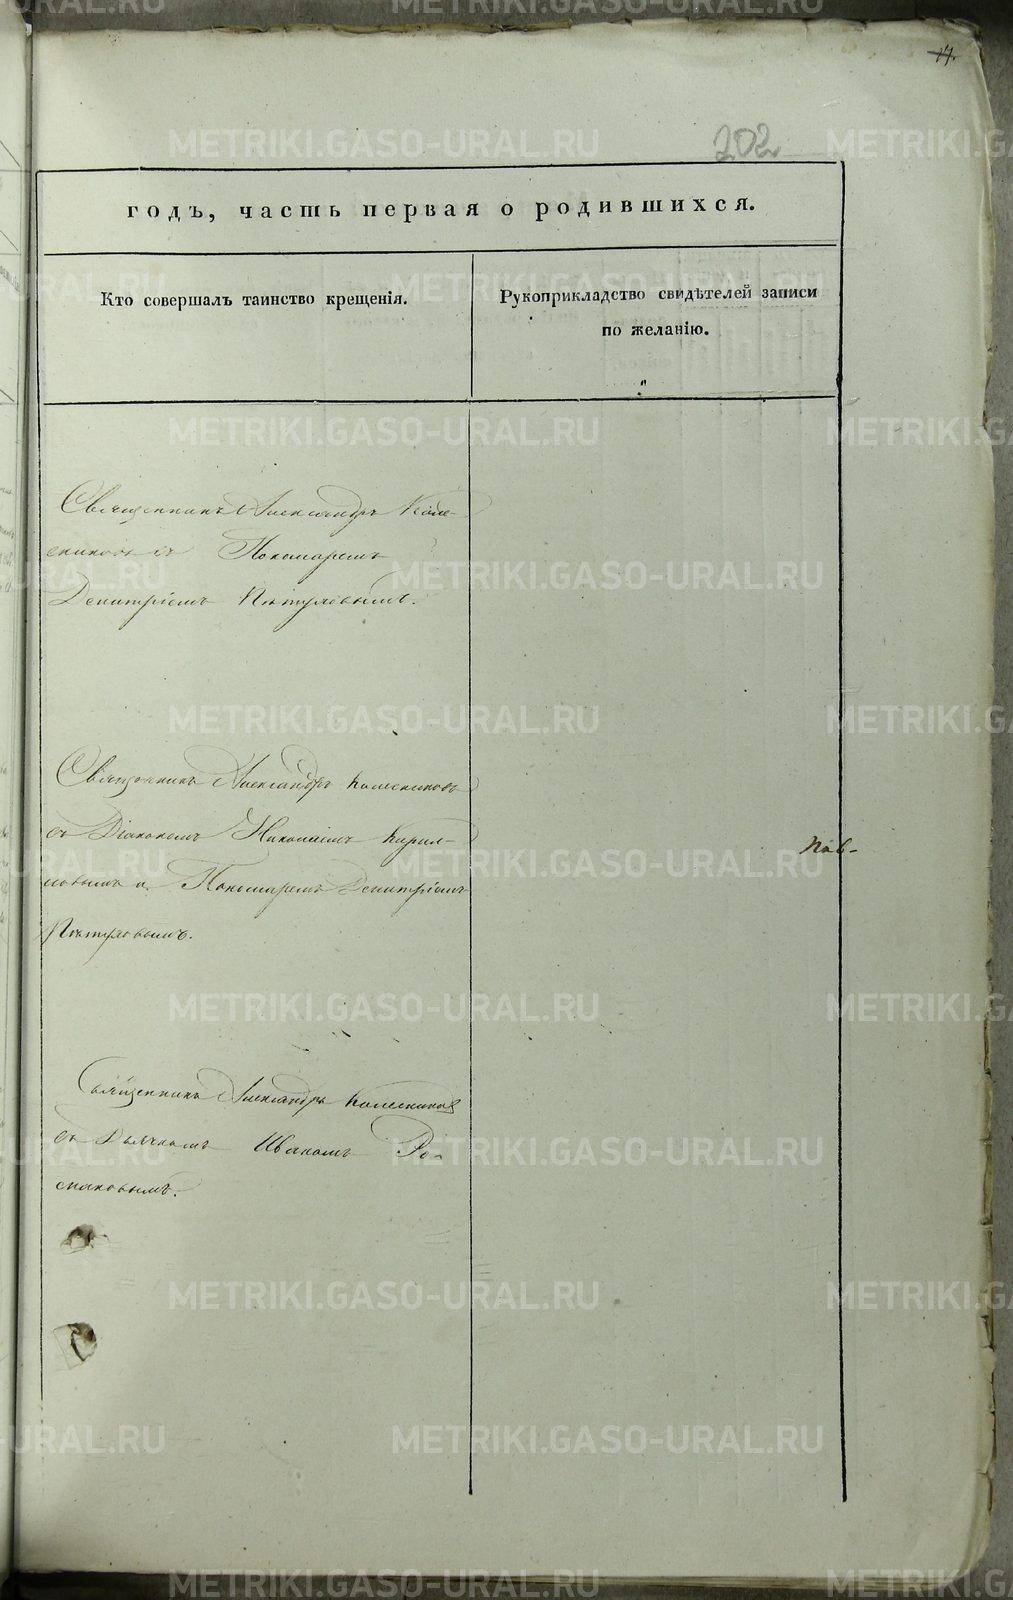 202
годъ, часть первая о родившихся.
Кто совершалъ таинство крещенія.
Рукоприкладство свидѣтелей записи
по желанію.
Священникъ Александръ Коле-
сниковъ съ Пономаремъ
Димитріемъ
Священникъ Александръ Колесниковъ
съ Діакономъ Николаемъ Кирил-
ловымъ и Пономаремъ Димитріемъ
Пав-
Священникъ Александръ Колесниковъ
съ Дьячкомъ Иваномъ
METRIKI.GASO-URAL.RU